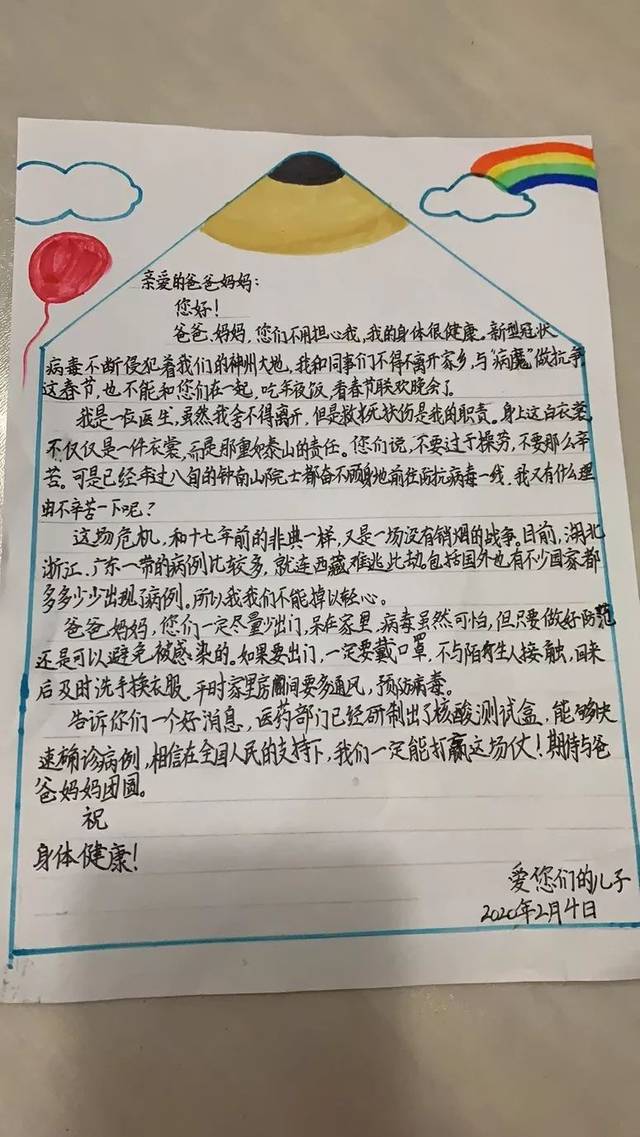 亲爱的爸爸妈妈：
您好！
爸爸、妈妈，您们不用担心我，我的身体很健康。新型冠状
病毒不断侵犯着我们的神州大地，我和同事们不得不离开家乡，与“病魔”做抗争
这春节，也不能和您们在一起，吃年夜饭，看春节联欢晚会了。
我是一位医生，虽然我舍不得离开，但是救死扶伤是我的职责。身上这白衣裳
不仅仅是一件衣裳，而是那重如泰山的责任。您们说，不要过于操劳，不要那么辛
苦。可是已经年过八旬的钟南山院士都奋不顾身地前往防抗病毒一线，我又有什么理
由不辛苦一下呢？
这场危机，和十七年前的非典一样，又是一场没有销烟的战争。目前，湖北
浙江、广东一带的病例比较多，就连西藏难逃此劫。包括国外也有不少国家都
多多少少出现了病例。所以我我们不能掉以轻心。
爸爸、妈妈，您们一定尽量少出门，呆在家里，病毒虽然可怕，但只要做好防范
还是可以避免被感染的。如果要出门，一定要戴口罩，不与陌生人接触，回来
后及时洗手换衣服。平时家里房间要多通风，预防病毒。
告诉你们一个好消息，医药部门已经研制出了核酸测试盒，能够快
速确诊病例，相信在全国人民的支持下，我们一定能打赢这场仗！期待与爸
爸妈妈团圆。
祝
身体健康！
爱您们的儿子
2020年2月4日